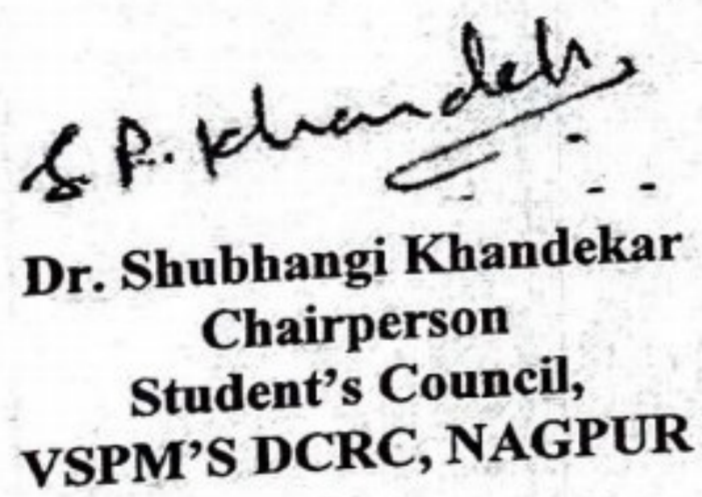 S P. Khandek
Dr. Shubhangi Khandekar
Chairperson
Student's Council,
VSPM'S DCRC, NAGPUR